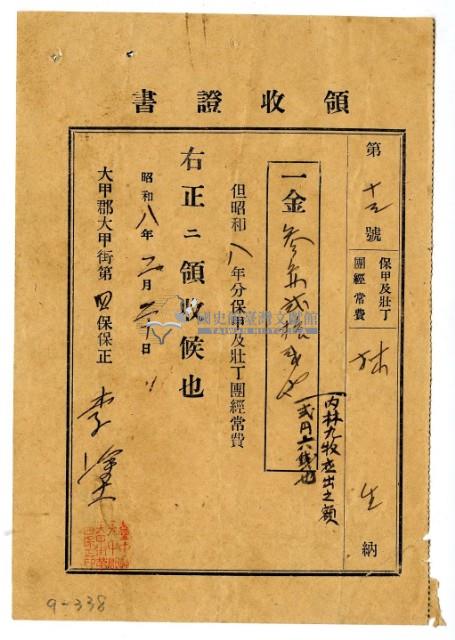 領收證書
第十五號 保甲及壯丁團經常費 林 生 納
一金參魚貳拾
內林九牧應出之額
貳円六錢也
但昭和八年分保甲及壯丁團經常費
右正ニ領收候也
昭和八年二月二十日
大甲郡大甲街第四保保正 李塗
國史館臺灣文獻館
TAIWAN HISTORICA
9-338